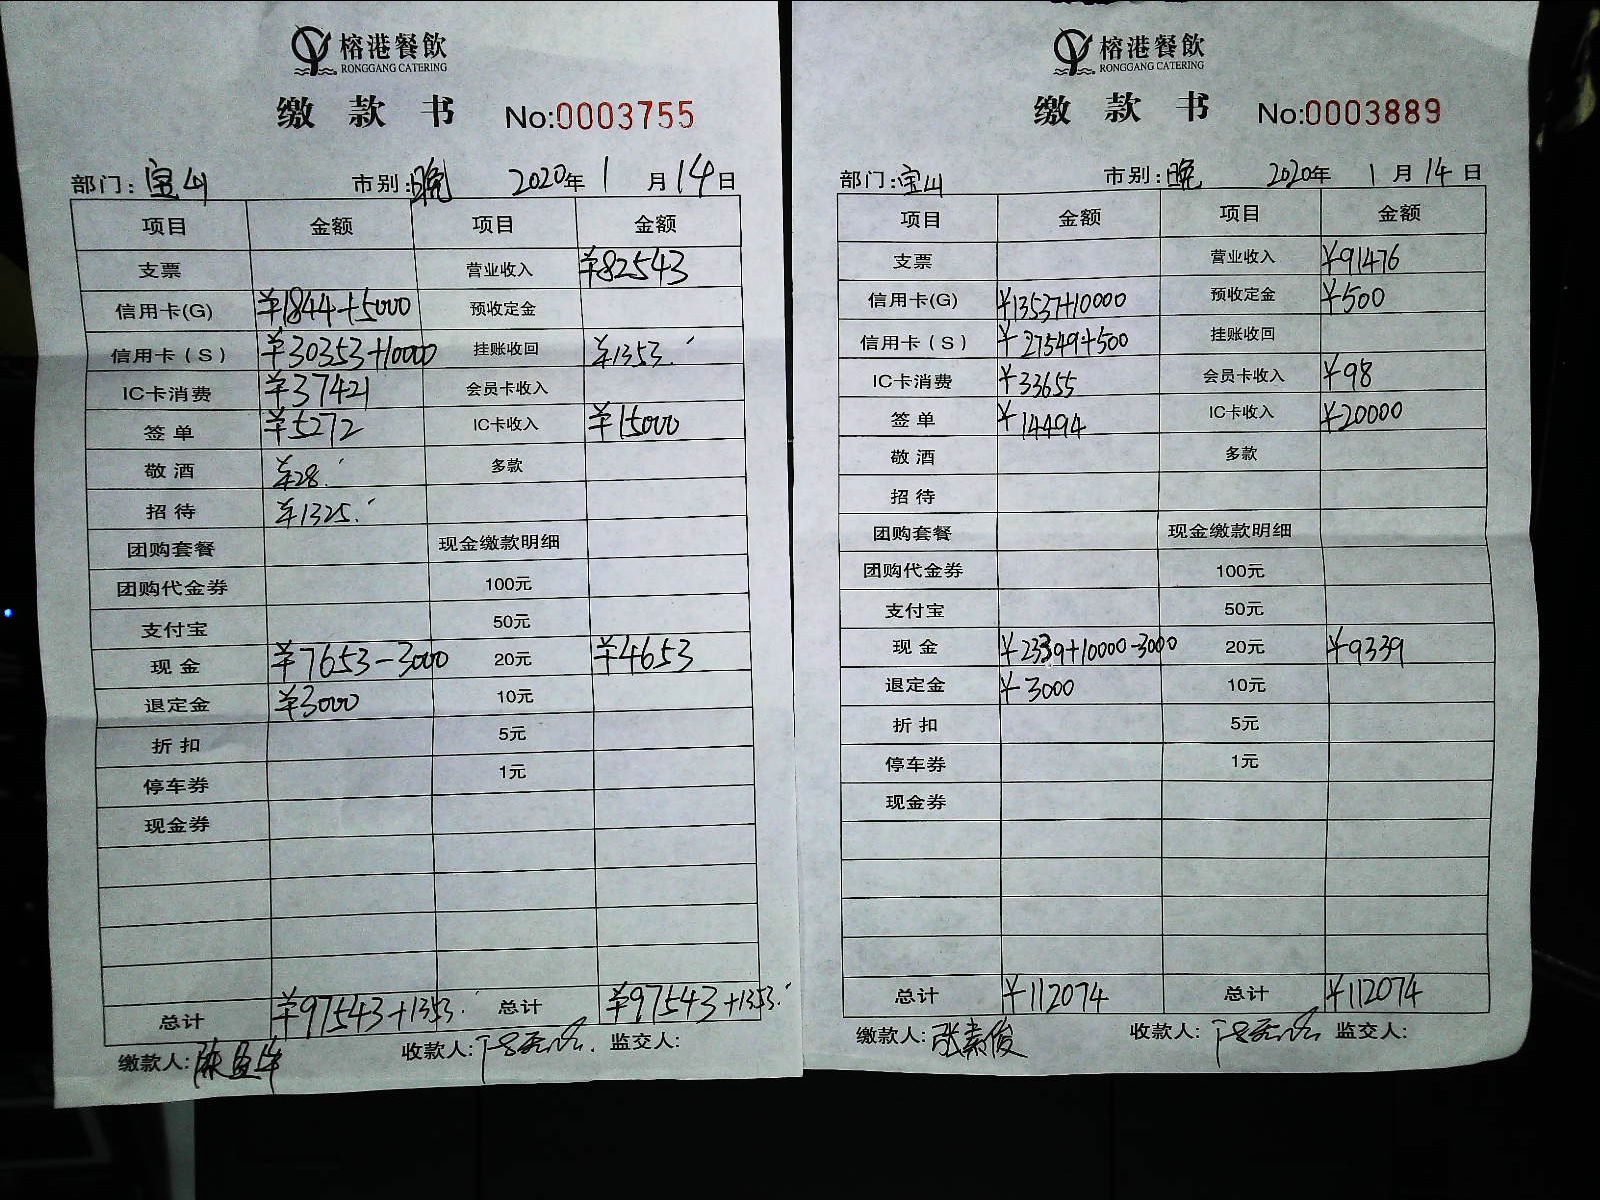 榕港餐飲
RONGGANG CATERING
缴款书 No:0003755
部门:宝山 市别:晚 2020年1月14日
项目 金额 项目 金额
支票 营业收入 ¥82543
信用卡(G) ¥1844+5000 预收定金
信用卡(S) ¥30353+10000 挂账收回 ¥1353.
IC卡消费 ¥37421 会员卡收入
签单 ¥5272 IC卡收入 ¥15000
敬酒 ¥28. 多款
招待 ¥1325.
团购套餐 现金缴款明细
团购代金券 100元
支付宝 50元
现金 ¥7653-3000 20元 ¥4653
退定金 ¥3000 10元
折扣 5元
停车券 1元
现金券
总计 ¥97543+1353. 总计 ¥97543+1353.
缴款人: 收款人: 监交人:
榕港餐飲
RONGGANG CATERING
缴款书 No:0003889
部门:宝山 市别:晚 2020年1月14日
项目 金额 项目 金额
支票 营业收入 ¥91476
信用卡(G) ¥13537+10000 预收定金 ¥500
信用卡(S) ¥27549+500 挂账收回
IC卡消费 ¥33655 会员卡收入 ¥98
签单 ¥14494 IC卡收入 ¥20000
敬酒 多款
招待
团购套餐 现金缴款明细
团购代金券 100元
支付宝 50元
现金 ¥2339+10000-3000 20元 ¥9339
退定金 ¥3000 10元
折扣 5元
停车券 1元
现金券
总计 ¥112074 总计 ¥112074
缴款人:张素俊 收款人: 监交人: